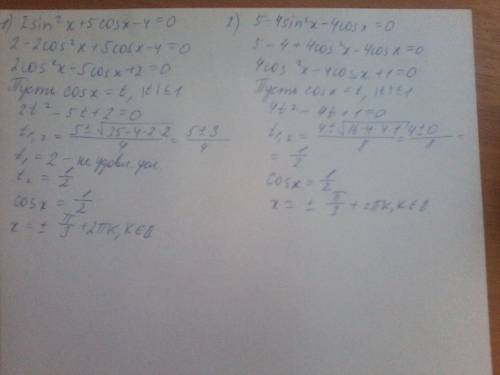 1) 2sin²x+5cosx-4=0
2-2cos²x+5cosx-4=0
2cos²x-5cosx+2=0
Пусть cosx=t, |t|≤1
2t²-5t+2=0
t₁,₂=(5±√(25-4·2·2))/4=(5±3)/4
t₁=2- не удовл. усл.
t₂=1/2
cosx=1/2
x=±π/3+2πk, k∈Z
2) 5-4sin²x-4cosx=0
5-4+4cos²x-4cosx=0
4cos²x-4cosx+1=0
Пусть cosx=t, |t|≤1
4t²-4t+1=0
t₁,₂=(4±√(16-4·4·1))/8=(4±0)/8=
=1/2
cosx=1/2
x=±π/3+2πk, k∈Z